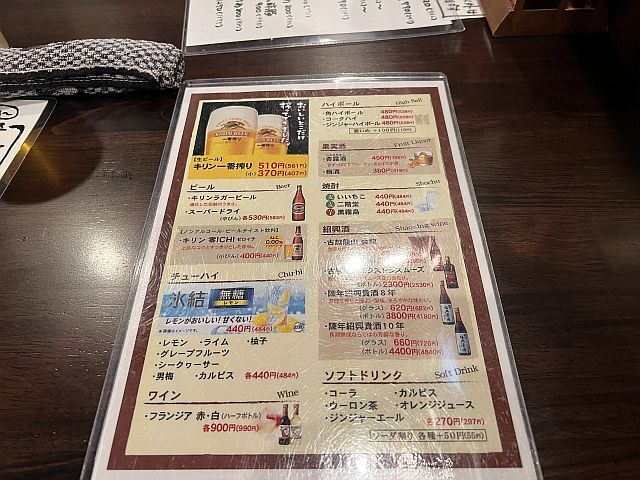 おいしいとこだけ
搾ってます。
KIRIN
一番搾り
【生ビール】
キリン一番搾り 510円(561円)
(小) 370円(407円)
ビール Beer
・キリンラガービール
・スーパードライ
(中びん) 各530円(583円)
【ノンアルコール・ビールテイスト飲料】
・キリン 零ICHI ゼロイチ
ALC. 0.00%
(小びん) 400円(440円)
チューハイ Chu-hi
氷結 無糖
レモン
レモンがおいしい!甘くない!
440円(484円)
・レモン ・ライム ・柚子
・グレープフルーツ
・シークヮーサー
・男梅 ・カルピス 各440円(484円)
ワイン Wine
・フランジア 赤・白(ハーフボトル)
各900円(990円)
ハイボール High Ball
・角ハイボール 480円(528円)
・コークハイ 480円(528円)
・ジンジャーハイボール 480円(528円)
濃いめ +100円(110円)
果実酒 Fruit Liquor
・杏露酒 450円(495円)
・梅酒 380円(418円)
焼酎 Shochu
いいちこ 440円(484円)
二階堂 440円(484円)
黒霧島 440円(484円)
紹興酒 Shaoxing wine
(ボトル) 2300円(2530円)
・陳年紹興貴酒8年
(グラス) 620円(682円)
(ボトル) 3800円(4180円)
・陳年紹興貴酒10年
(グラス) 660円(726円)
(ボトル) 4400円(4840円)
ソフトドリンク Soft Drink
・コーラ ・カルピス
・ウーロン茶 ・オレンジジュース
・ジンジャーエール 各270円(297円)
ソーダ割り 各種+50円(55円)